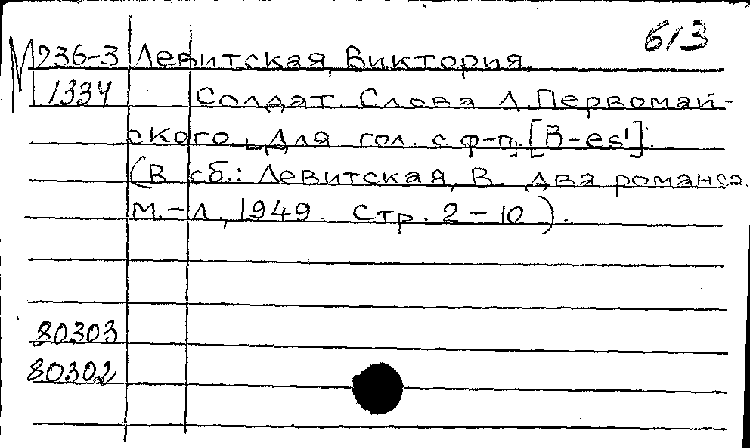 б/з
М 236-3 Левитская, Виктория.
1334 Солдат. Слова Л. Первомай-
ского. Для гол. с ф-п. [B-es¹].
(В сб.: Левитская, В. Два романса.
М.-Л., 1949. Стр. 2-10).
80303
80302